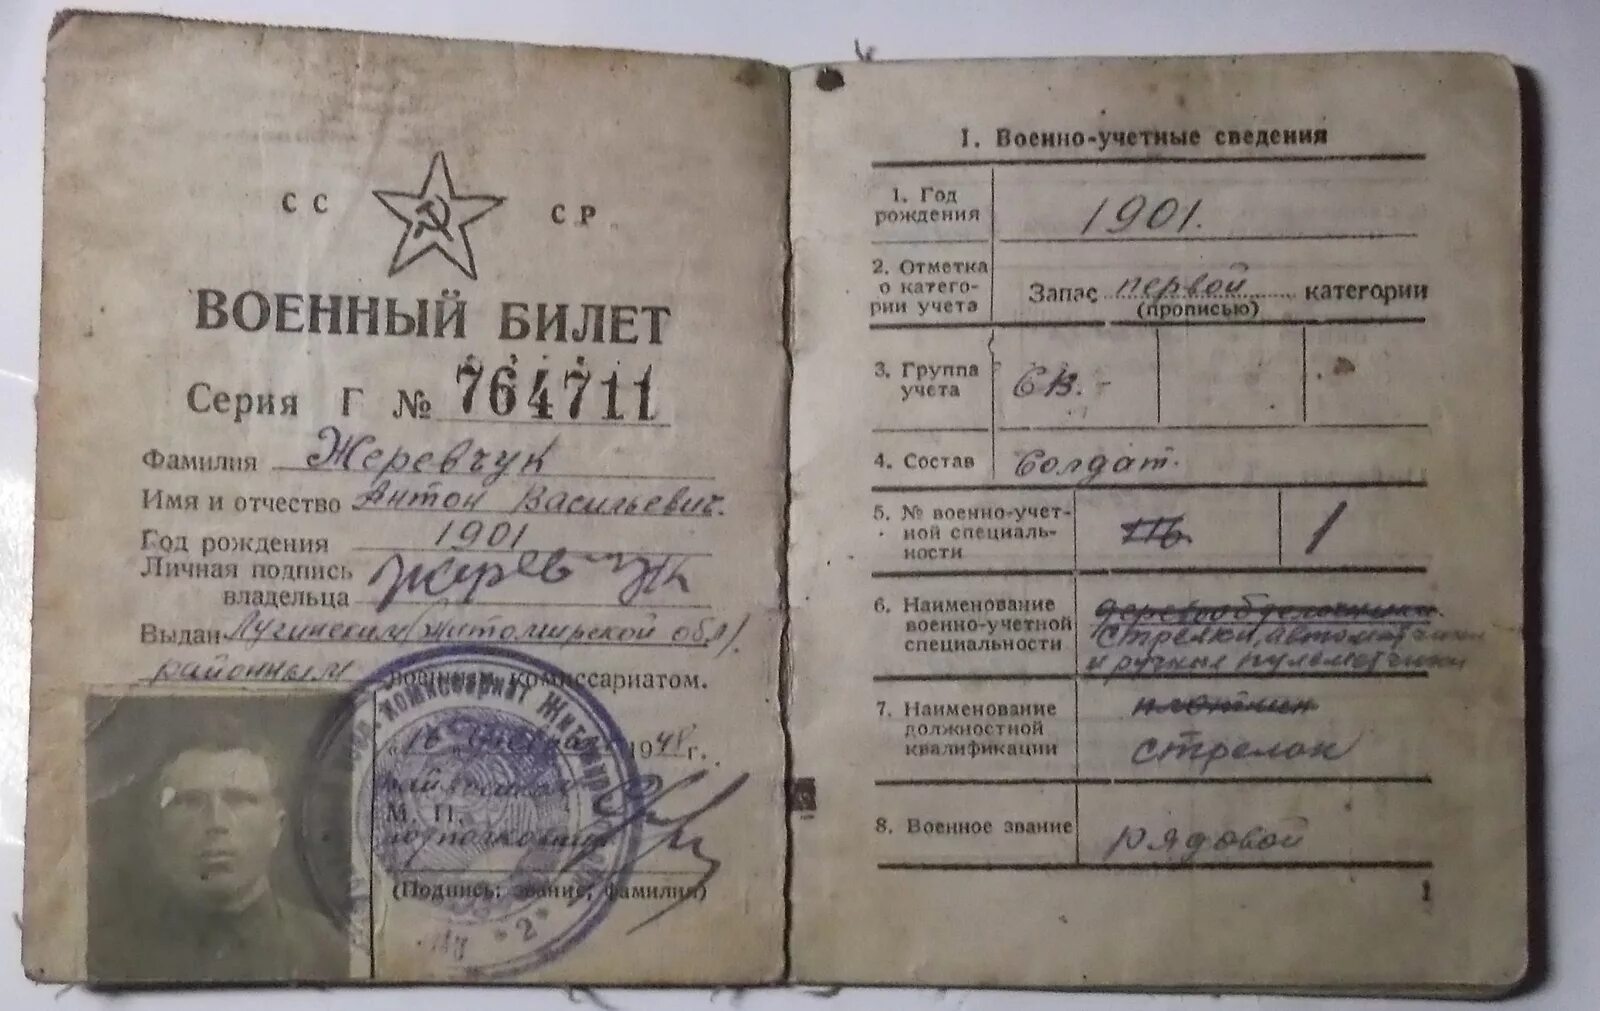 СС СР
ВОЕННЫЙ БИЛЕТ
Серия Г № 764711
Фамилия Жеревчук
Имя и отчество Антон Васильевич.
Год рождения 1901
Личная подпись Жеревчук
владельца
Выдан Лугинским (Житомирской обл).
районным военным комиссариатом.
1948 г.
райвоенком
М. П.
подполковник
(Подпись, звание, фамилия)
КОМИССАРИАТ ЖИТОМИР
* 2 *
I. Военно-учетные сведения
1. Год
рождения
1901.
2. Отметка
о катего-
рии учета
Запас первой категории
(прописью)
3. Группа
учета
СВ. -
4. Состав
Солдат.
5. № военно-учет-
ной специаль-
ности
1
6. Наименование
военно-учетной
специальности
деревообделочники.
стрелки, автоматчики
и ручные пулеметчики
7. Наименование
должностной
квалификации
плотник
стрелок
8. Военное звание
рядовой
1